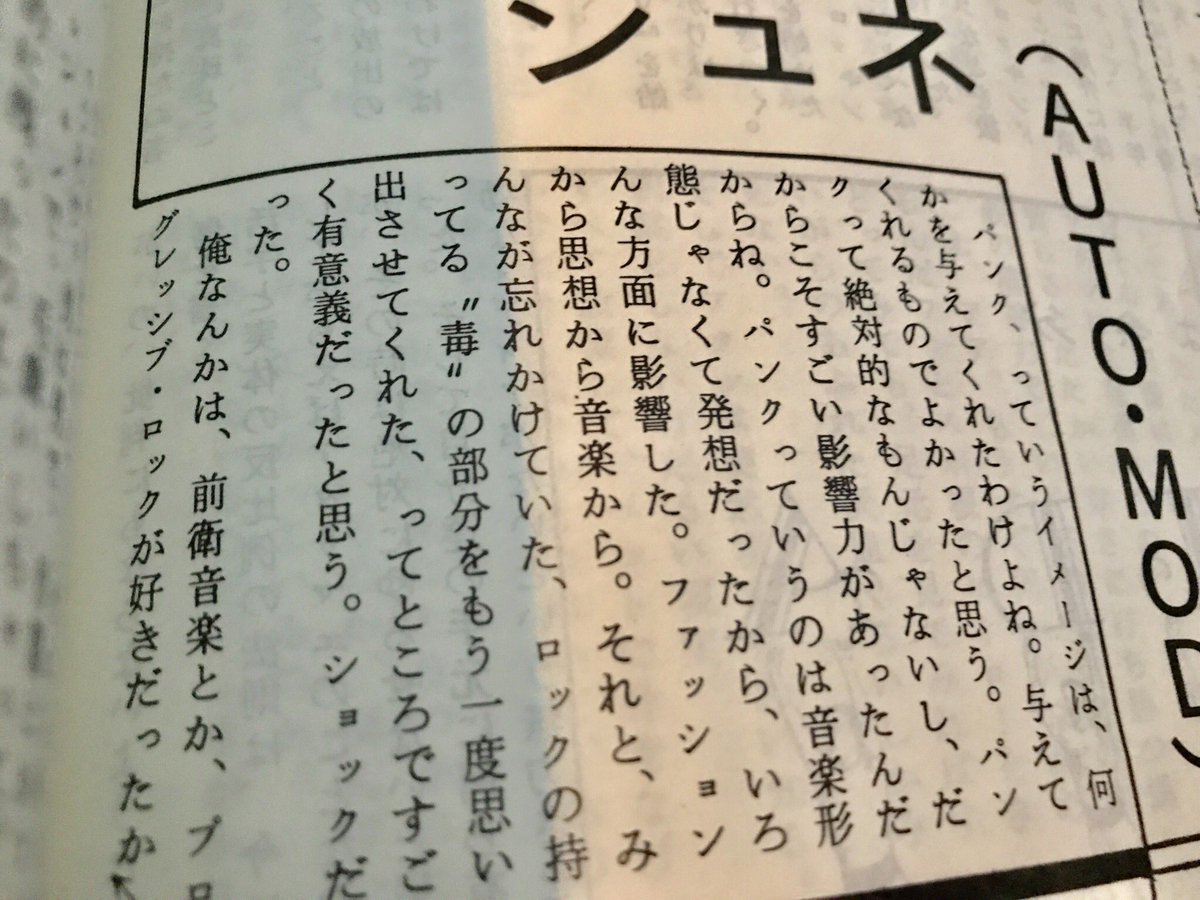 ジュネ
(AUTO・MOD)
パンク、っていうイメージは、何
かを与えてくれたわけよね。与えて
くれるものでよかったと思う。パン
クって絶対的なもんじゃないし、だ
からこそすごい影響力があったんだ
からね。パンクっていうのは音楽形
態じゃなくて発想だったから、いろ
んな方面に影響した。ファッション
から思想から音楽から。それと、み
んなが忘れかけていた、ロックの持
ってる〝毒〟の部分をもう一度思い
出させてくれた、ってところですご
く有意義だったと思う。ショックだ
った。
俺なんかは、前衛音楽とか、プロ
グレッシブ・ロックが好きだったか